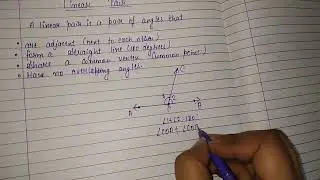 Linear Pair
A linear pair is a pair of angles that
• are adjacent (next to each other)
• form a straight line (180 degrees)
• share a common vertex (common point)
• Have no overlapping angles.
C
A
B
∠1+∠2=180°